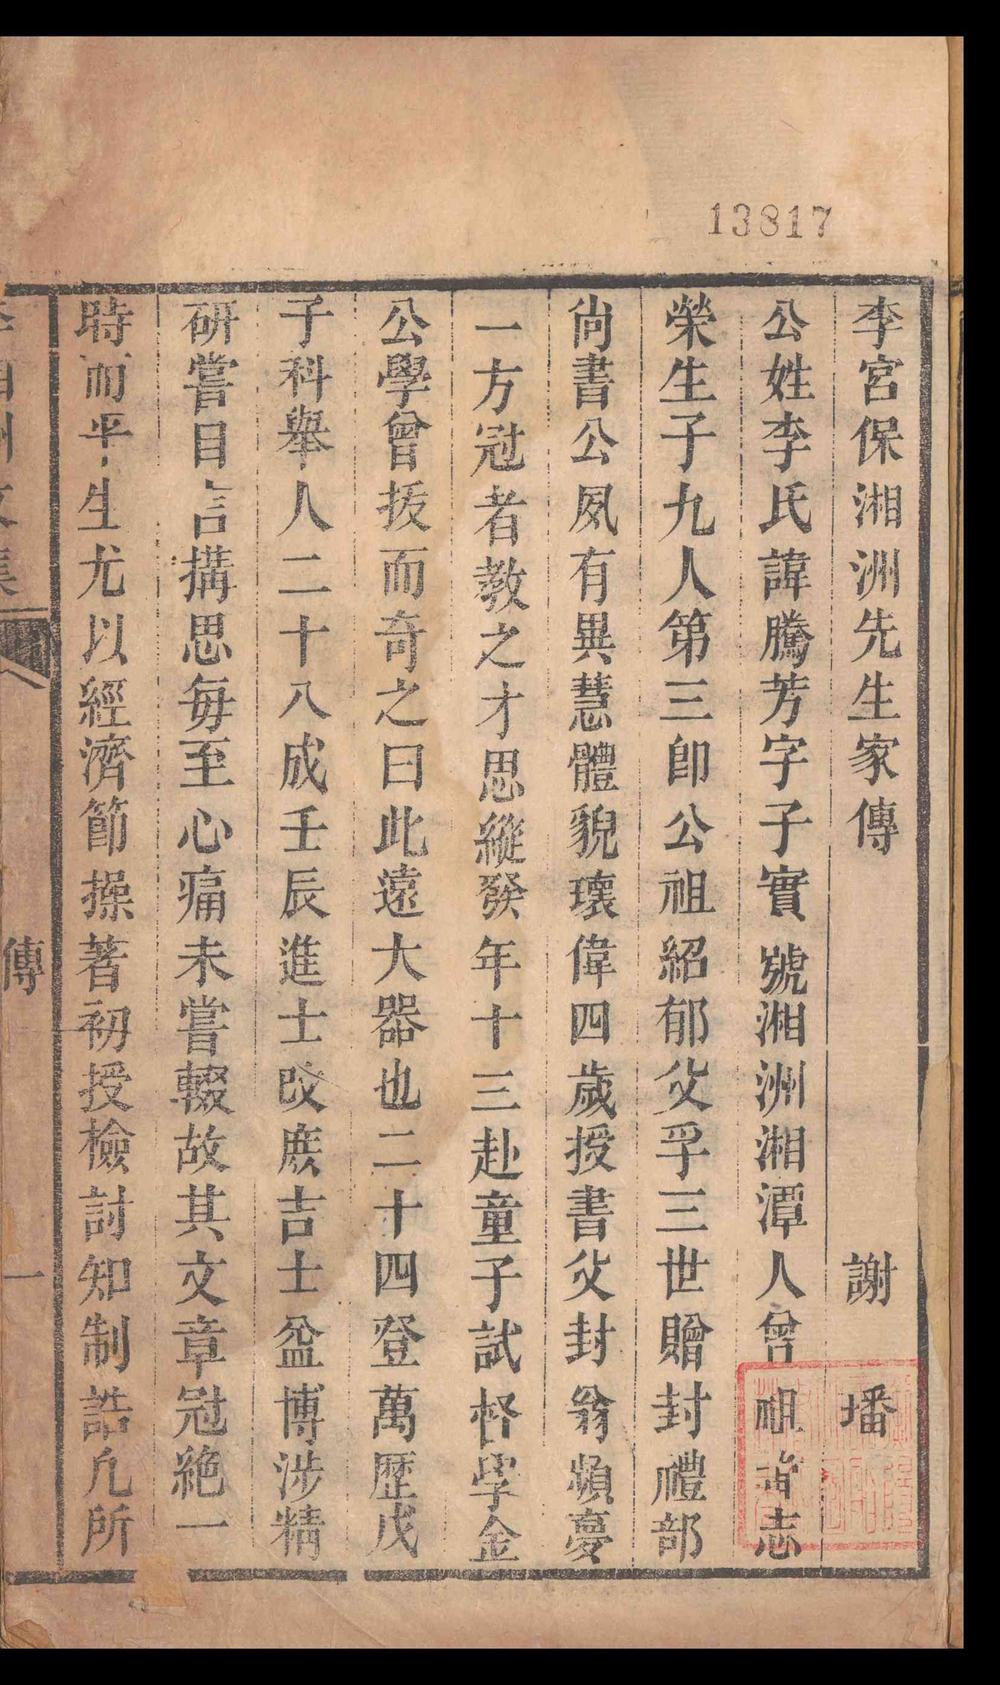 13817
李宮保湘洲先生家傳 謝墦
公姓李氏諱騰芳字子實號湘洲湘潭人曾祖尚志
榮生子九人第三卽公祖紹郁父孚三世贈封禮部
尙書公夙有異慧體貌瓌偉四歲授書父封翁頻夢
一方冠者教之才思縱發年十三赴童子試督學金
公學曾拔而奇之曰此遠大器也二十四登萬歷戊
子科舉人二十八成壬辰進士改庶吉士益博涉精
研嘗目言搆思每至心痛未嘗輟故其文章冠絶一
時而平生尤以經濟節操著初授檢討知制誥凡所
李湘洲文集
傳
一